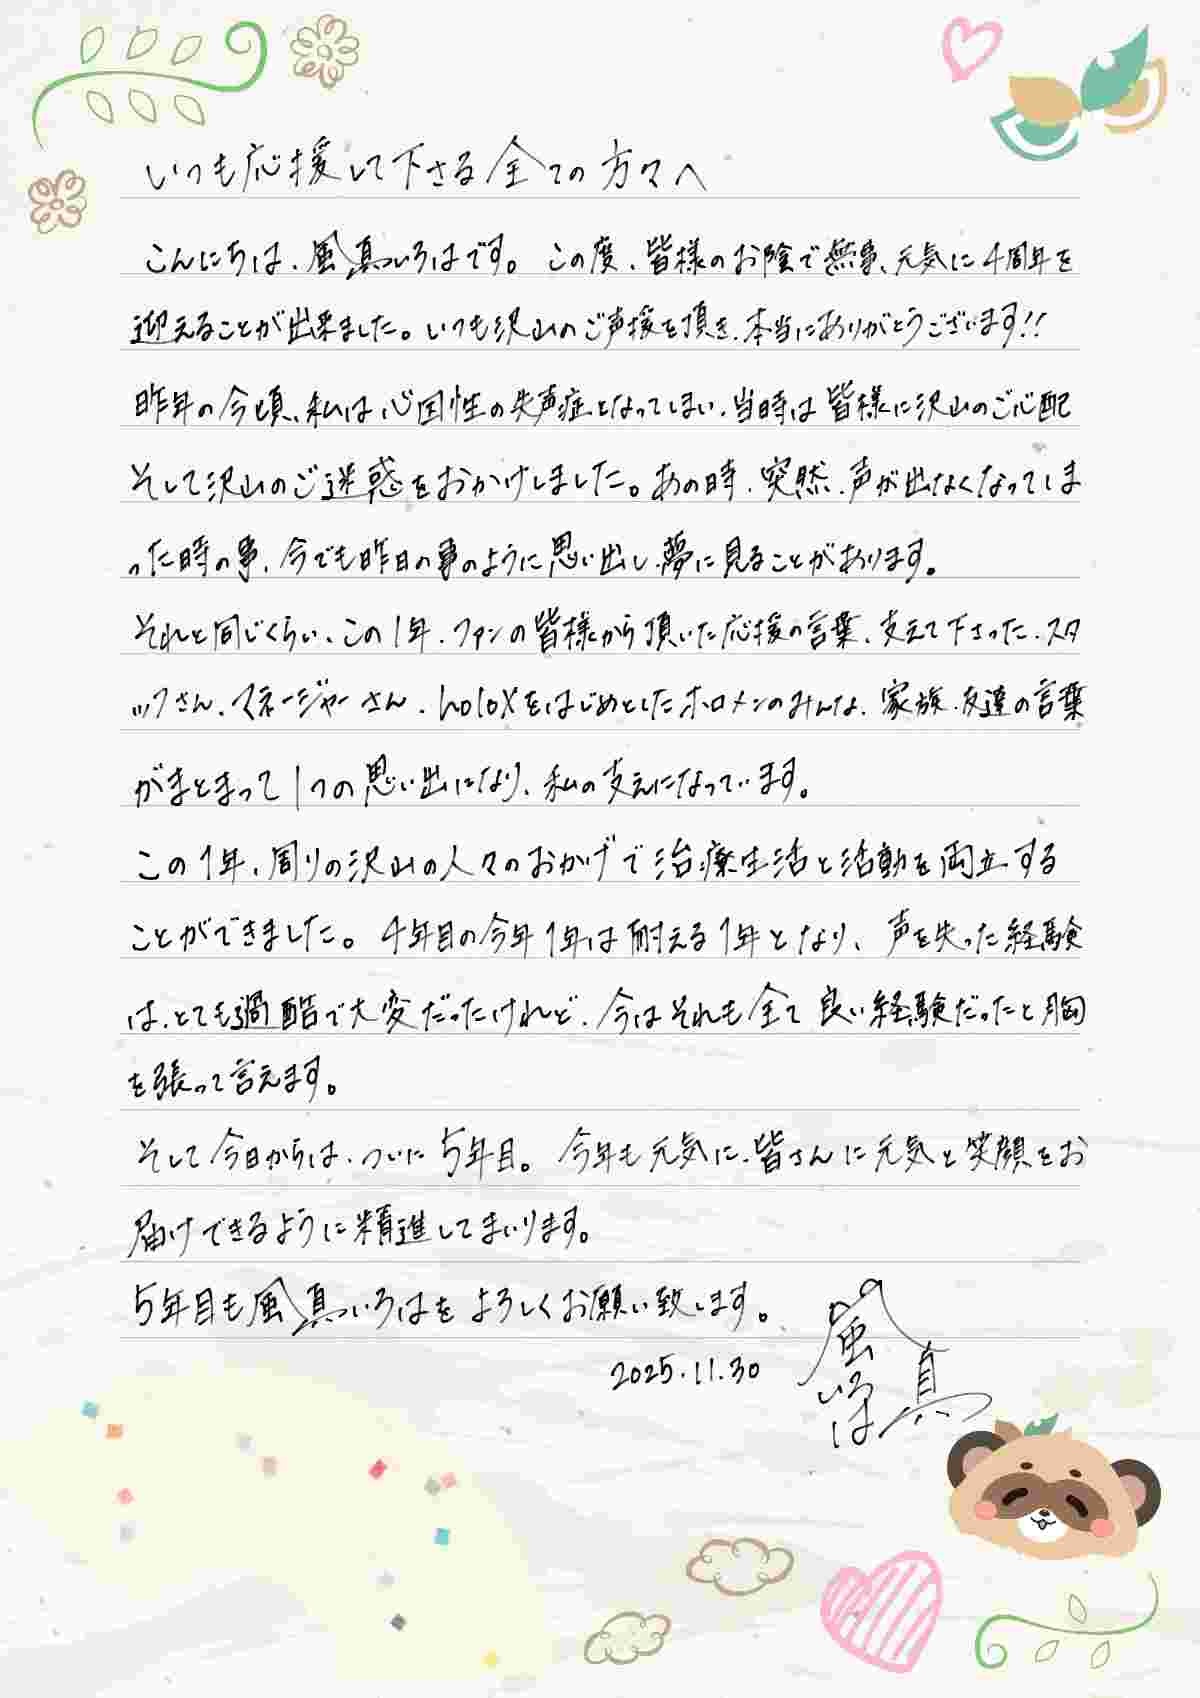 いつも応援して下さる全ての方々へ
こんにちは、風真いろはです。この度、皆様のお陰で無事、元気に4周年を
迎えることが出来ました。いつも沢山のご声援を頂き、本当にありがとうございます!!
昨年の今頃、私は心因性の失声症となってしまい、当時は皆様に沢山のご心配
そして沢山のご迷惑をおかけしました。あの時、突然、声が出なくなってしま
った時の事、今でも昨日の事のように思い出し、夢に見ることがあります。
それと同じくらい、この1年、ファンの皆様から頂いた応援の言葉、支えて下さった、スタ
ッフさん、マネージャーさん、holoXをはじめとしたホロメンのみんな、家族、友達の言葉
がまとまって1つの思い出になり、私の支えになっています。
この1年、周りの沢山の人々のおかげで治療生活と活動を両立する
ことができました。4年目の今年1年は耐える1年となり、声を失った経験
は、とても過酷で大変だったけれど、今はそれも全て良い経験だったと胸
を張って言えます。
そして今日からは、ついに5年目。今年も元気に、皆さんに元気と笑顔をお
届けできるように精進してまいります。
5年目も風真いろはをよろしくお願い致します。
2025.11.30
風真
いろは